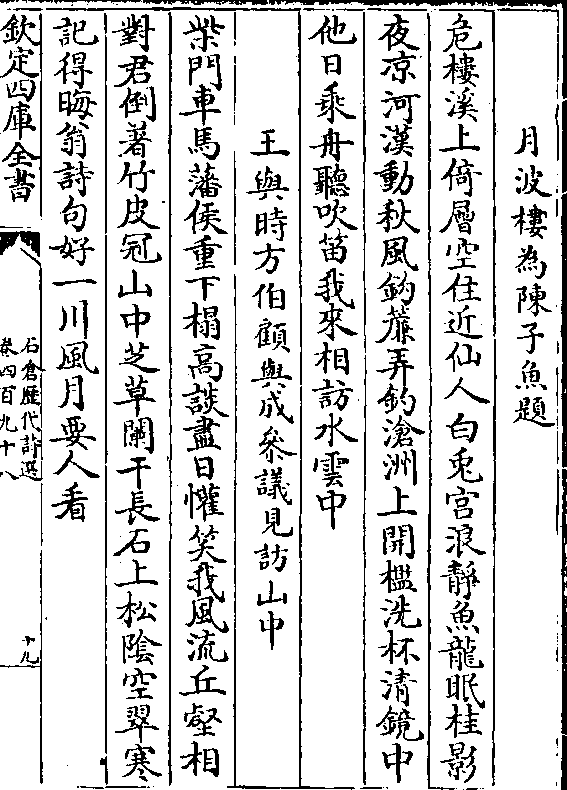 月波樓為陳子魚題
危樓溪上倚層空住近仙人白兎宮浪靜魚龍眠桂影
夜凉河漢動秋風鈎簾弄釣滄洲上開檻洗杯清鏡中
他日乘舟聽吹笛我來相訪水雲中
王與時方伯顧與成參議見訪山中
柴門車馬藩侯重下榻高談盡日懽笑我風流丘壑相
對君倒著竹皮冠山中芝草闌干長石上松隂空翠寒
記得晦翁詩句好一川風月要人看
欽定四庫全書
石倉歷代詩選
卷四百九十八
十九